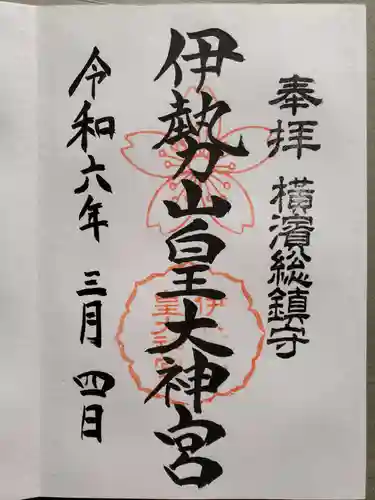 奉拝 横濱総鎮守
伊勢山皇大神宮
令和六年 三月 四日